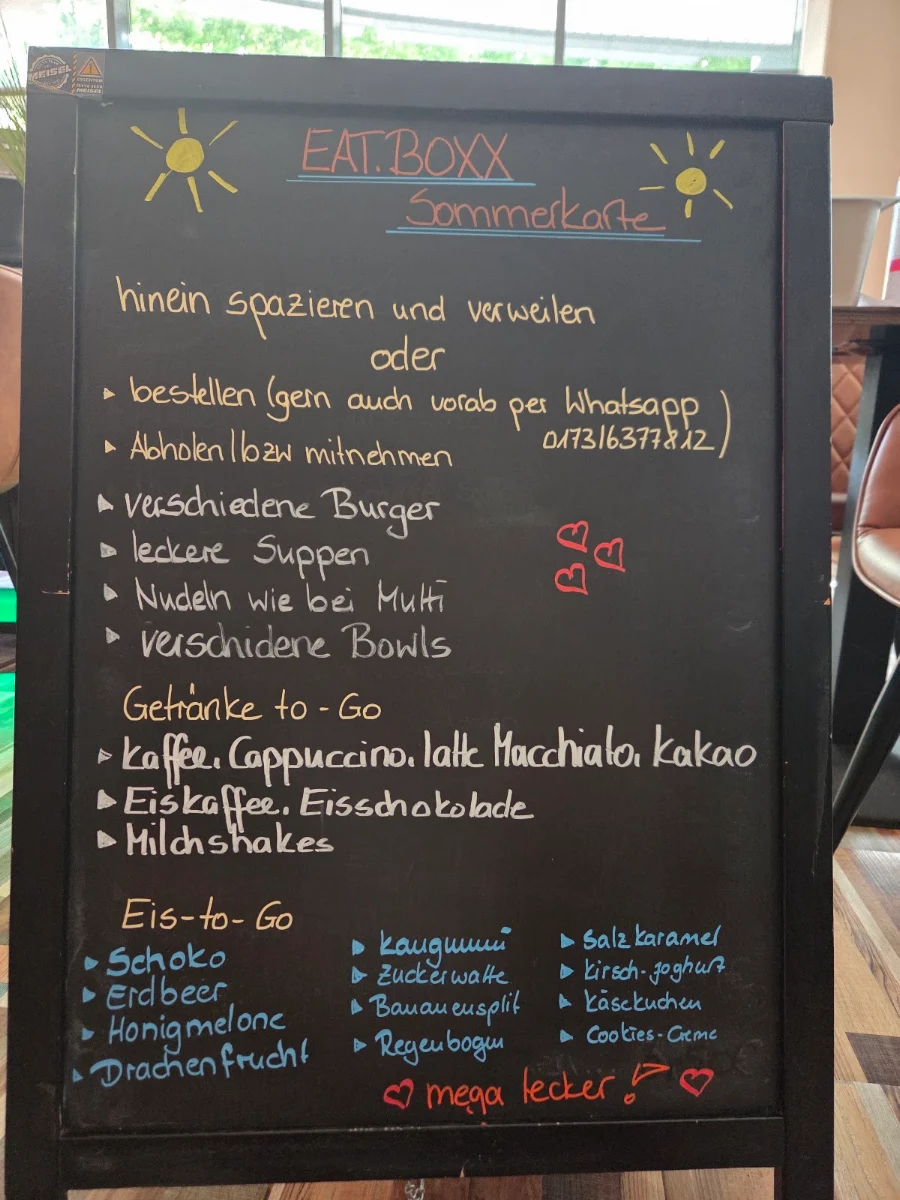 MEISEL
MEISEL
EAT.BOXX
Sommerkarte
hinein spazieren und verweilen
oder
▸ bestellen (gern auch vorab per Whatsapp
0173/6377812)
▸ Abholen / bzw mitnehmen
▸ verschiedene Burger
▸ leckere Suppen
▸ Nudeln wie bei Mutti
▸ verschidene Bowls
Getränke to-Go
▸ Kaffee, Cappuccino, latte Macchiato, Kakao
▸ Eiskaffee, Eisschokolade
▸ Milchshakes
Eis-to-Go
▸ Schoko
▸ Erdbeer
▸ Honigmelone
▸ Drachenfrucht
▸ Kaugummi
▸ Zuckerwatte
▸ Bananensplit
▸ Regenbogen
▸ Salzkaramel
▸ Kirsch-Joghurt
▸ Käsekuchen
▸ Cookies-Creme
mega lecker!